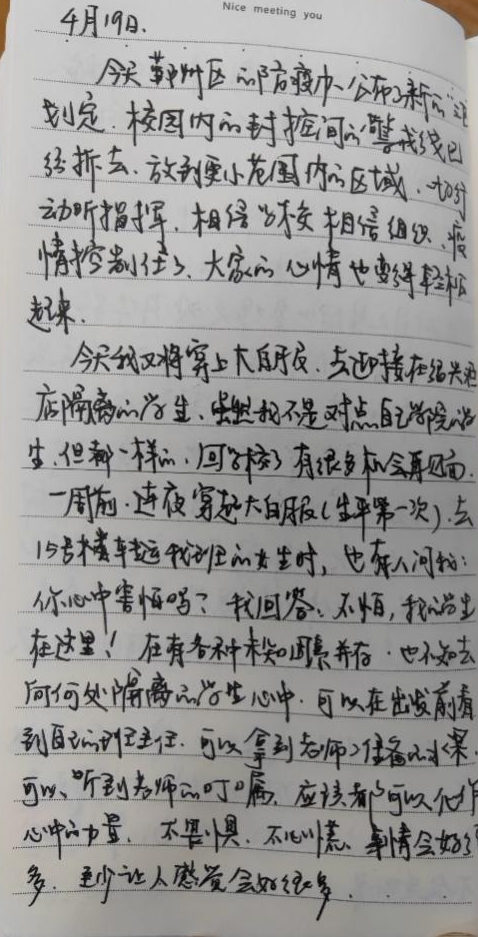 Nice meeting you
4月19日.
今天鄞州区的防疫办公布了新的
划定.校园内的封控间的警戒线已
经拆去、放到更小范围内的区域.一切行
动听指挥.相信学校相信组织、疫
情控制住了、大家的心情也变得轻松
起来.
今天我又将穿上大白服、去迎接在绍兴酒
店隔离的学生.虽然我不是对点自己学院的学
生、但都一样的、回学校了有很多机会再见面.
一周前.连夜穿起大白服(生平第一次).去
15号楼车运我班里的女生时,也有人问我:
你心中害怕吗?我回答、不怕,我的学生
在这里!在有各种未知因素并存.也不知去
向何处隔离的学生心中.可以在出发前看
到自己的班主任.可以拿到老师准备的水果.
可以听到老师的叮嘱.应该都可以化作
心中的力量.不畏惧、不心慌、事情会好
多.至少让人感觉会好很多.